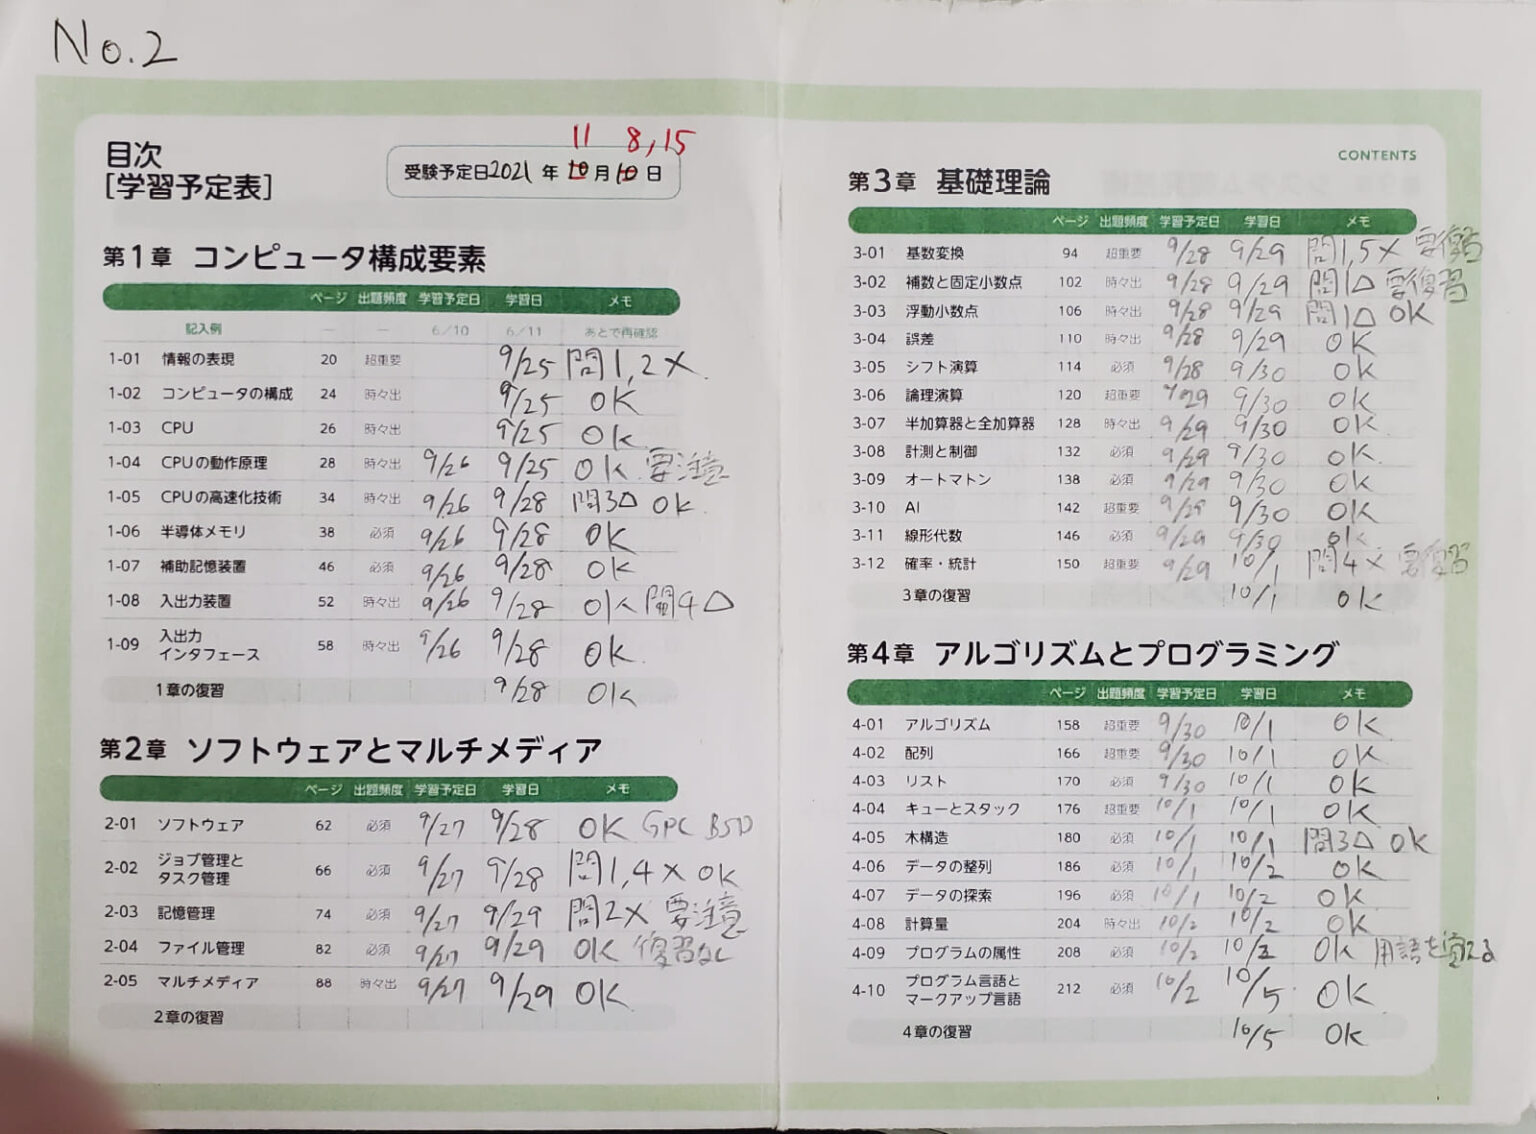 No.2
目次
[学習予定表]
11 8,15
受験予定日2021 年 10 月 10 日
第1章 コンピュータ構成要素
ページ 出題頻度 学習予定日 学習日 メモ
記入例 — — 6/10 6/11 あとで再確認
1-01 情報の表現 20 超重要 9/25 問1,2×
1-02 コンピュータの構成 24 時々出 9/25 OK
1-03 CPU 26 時々出 9/25 OK
1-04 CPUの動作原理 28 時々出 9/26 9/25 OK 要注意
1-05 CPUの高速化技術 34 時々出 9/26 9/28 問3△ OK
1-06 半導体メモリ 38 必須 9/26 9/28 OK
1-07 補助記憶装置 46 必須 9/26 9/28 OK
1-08 入出力装置 52 時々出 9/26 9/28 OK 問4△
1-09 入出力
インタフェース 58 時々出 9/26 9/28 OK
1章の復習 9/28 OK
第2章 ソフトウェアとマルチメディア
ページ 出題頻度 学習予定日 学習日 メモ
2-01 ソフトウェア 62 必須 9/27 9/28 OK GPC BSD
2-02 ジョブ管理と
タスク管理 66 必須 9/27 9/28 問1,4× OK
2-03 記憶管理 74 必須 9/27 9/29 問2× 要注意
2-04 ファイル管理 82 必須 9/27 9/29 OK 復習なし
2-05 マルチメディア 88 時々出 9/27 9/29 OK
2章の復習
CONTENTS
第3章 基礎理論
ページ 出題頻度 学習予定日 学習日 メモ
3-01 基数変換 94 超重要 9/28 9/29 問1,5× 要復習
3-02 補数と固定小数点 102 時々出 9/28 9/29 問1△ 要復習
3-03 浮動小数点 106 時々出 9/28 9/29 問1△ OK
3-04 誤差 110 時々出 9/28 9/29 OK
3-05 シフト演算 114 必須 9/28 9/30 OK
3-06 論理演算 120 超重要 9/29 9/30 OK
3-07 半加算器と全加算器 128 時々出 9/29 9/30 OK
3-08 計測と制御 132 必須 9/29 9/30 OK
3-09 オートマトン 138 必須 9/29 9/30 OK
3-10 AI 142 超重要 9/29 9/30 OK
3-11 線形代数 146 必須 9/29 9/30 OK
3-12 確率・統計 150 超重要 9/29 10/1 問4× 要復習
3章の復習 10/1 OK
第4章 アルゴリズムとプログラミング
ページ 出題頻度 学習予定日 学習日 メモ
4-01 アルゴリズム 158 超重要 9/30 10/1 OK
4-02 配列 166 超重要 9/30 10/1 OK
4-03 リスト 170 必須 9/30 10/1 OK
4-04 キューとスタック 176 超重要 10/1 10/1 OK
4-05 木構造 180 必須 10/1 10/1 問3△ OK
4-06 データの整列 186 必須 10/1 10/2 OK
4-07 データの探索 196 必須 10/1 10/2 OK
4-08 計算量 204 時々出 10/2 10/2 OK
4-09 プログラムの属性 208 必須 10/2 10/2 OK 用語を覚える
4-10 プログラム言語と
マークアップ言語 212 必須 10/2 10/5 OK
4章の復習 10/5 OK